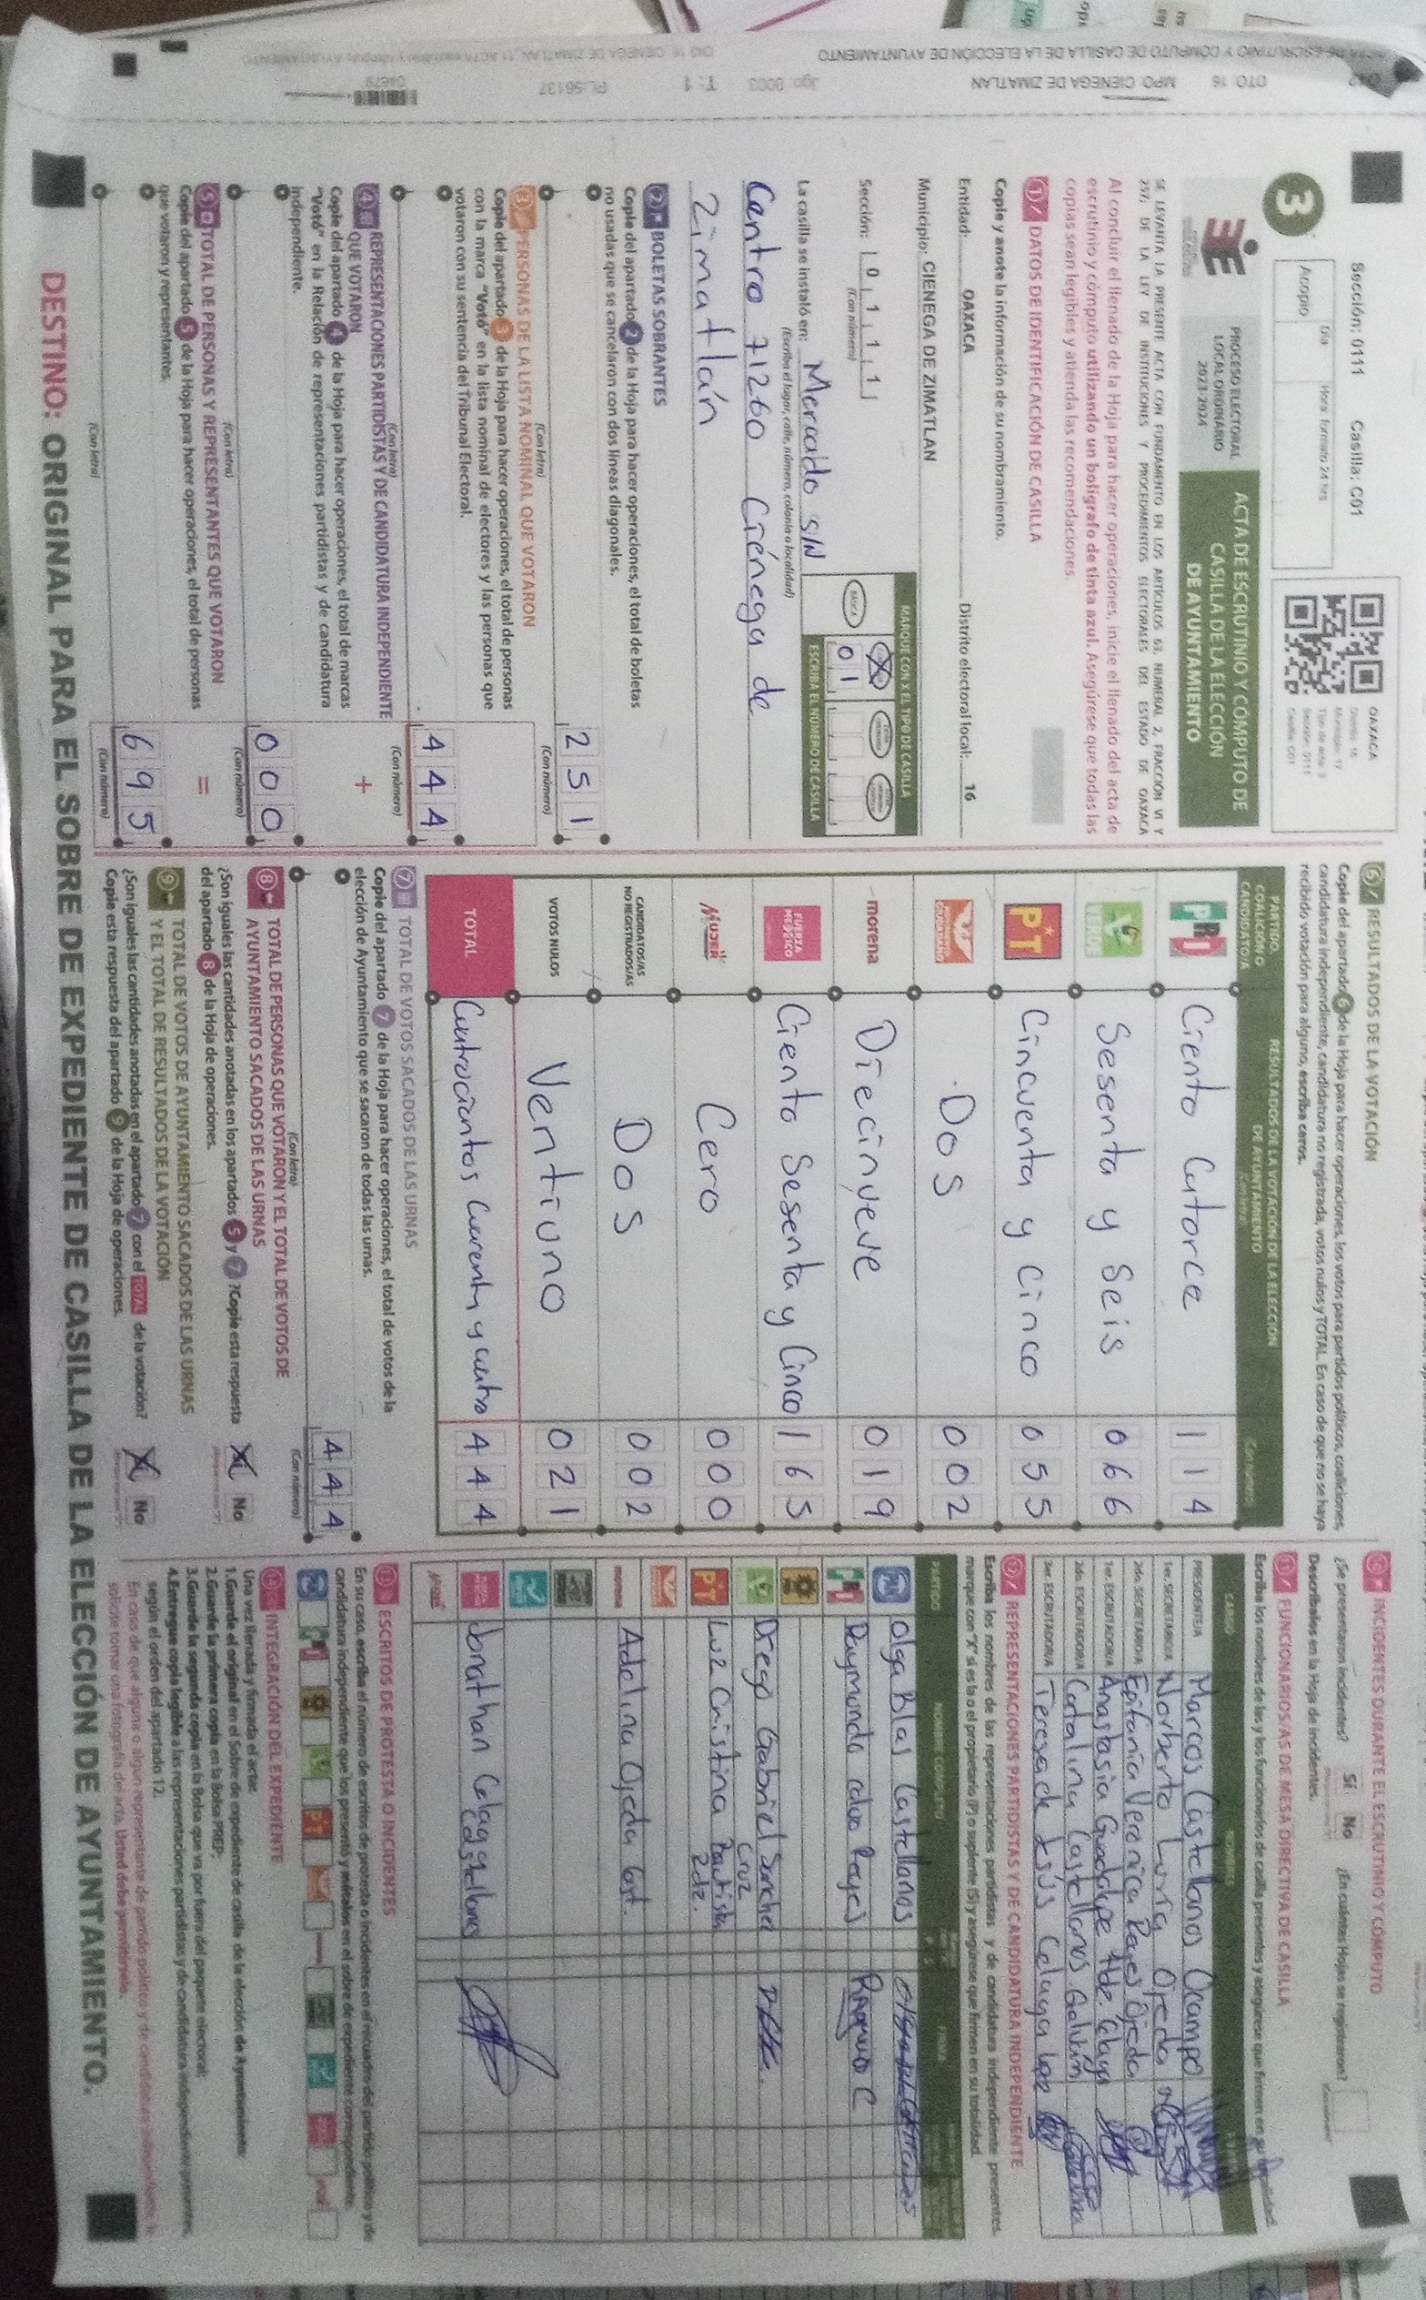 Sección: 0111 Casilla: C01
3
Día Hora: formato 24 hrs
Acopio
OAXACA
PROCESO ELECTORAL
LOCAL ORDINARIO
2023-2024
ACTA DE ESCRUTINIO Y CÓMPUTO DE
CASILLA DE LA ELECCIÓN
DE AYUNTAMIENTO
SE LEVANTA LA PRESENTE ACTA CON FUNDAMENTO EN LOS ARTÍCULOS 63, NUMERAL 2, FRACCIÓN VI Y
257; DE LA LEY DE INSTITUCIONES Y PROCEDIMIENTOS ELECTORALES DEL ESTADO DE OAXACA
Al concluir el llenado de la Hoja para hacer operaciones, inicie el llenado del acta de
escrutinio y cómputo utilizando un bolígrafo de tinta azul. Asegúrese que todas las
copias sean legibles y atienda las recomendaciones.
1 DATOS DE IDENTIFICACIÓN DE CASILLA
Copie y anote la información de su nombramiento.
Entidad: OAXACA Distrito electoral local: 16
Municipio: CIENEGA DE ZIMATLAN
Sección: 0 1 1 1
(Con número)
MARQUE CON X EL TIPO DE CASILLA
BÁSICA
0 1
ESCRIBA EL NÚMERO DE CASILLA
La casilla se instaló en: Mercado S/N
(Escriba el lugar, calle, número, colonia o localidad)
Centro 71260 Ciénega de
Zimatlán
2 BOLETAS SOBRANTES
Copie del apartado 2 de la Hoja para hacer operaciones, el total de boletas
no usadas que se cancelaron con dos líneas diagonales.
2 5 1
(Con letra) (Con número)
3 PERSONAS DE LA LISTA NOMINAL QUE VOTARON
Copie del apartado 3 de la Hoja para hacer operaciones, el total de personas
con la marca "Votó" en la lista nominal de electores y las personas que
votaron con su sentencia del Tribunal Electoral.
4 4 4
(Con letra) (Con número)
4 REPRESENTACIONES PARTIDISTAS Y DE CANDIDATURA INDEPENDIENTE
QUE VOTARON
+
Copie del apartado 4 de la Hoja para hacer operaciones, el total de marcas
"Votó" en la Relación de representaciones partidistas y de candidatura
independiente.
0 0 0
(Con letra) (Con número)
5 TOTAL DE PERSONAS Y REPRESENTANTES QUE VOTARON
=
Copie del apartado 5 de la Hoja para hacer operaciones, el total de personas
que votaron y representantes.
6 9 5
(Con letra) (Con número)
6 RESULTADOS DE LA VOTACIÓN
Copie del apartado 6 de la Hoja para hacer operaciones, los votos para partidos políticos, coaliciones,
candidatura independiente, candidatura no registrada, votos nulos y TOTAL. En caso de que no se haya
recibido votación para alguno, escriba ceros.
PARTIDO,
COALICIÓN O
CANDIDATO/A
RESULTADOS DE LA VOTACIÓN DE LA ELECCIÓN
DE AYUNTAMIENTO
PRI Ciento Catorce 1 1 4
VERDE Sesenta y Seis 0 6 6
PT Cincuenta y Cinco 0 5 5
MOVIMIENTO CIUDADANO Dos 0 0 2
morena Diecinueve 0 1 9
FUERZA MÉXICO Ciento Sesenta y Cinco 1 6 5
MUJER Cero 0 0 0
CANDIDATOS/AS
NO REGISTRADOS/AS Dos 0 0 2
VOTOS NULOS Ventiuno 0 2 1
TOTAL Cuatrocientos Cuarenta y cuatro 4 4 4
7 TOTAL DE VOTOS SACADOS DE LAS URNAS
Copie del apartado 7 de la Hoja para hacer operaciones, el total de votos de la
elección de Ayuntamiento que se sacaron de todas las urnas.
4 4 4
(Con letra) (Con número)
8 TOTAL DE PERSONAS QUE VOTARON Y EL TOTAL DE VOTOS DE
AYUNTAMIENTO SACADOS DE LAS URNAS
¿Son iguales las cantidades anotadas en los apartados 5 y 7 ? Copie esta respuesta
del apartado 8 de la Hoja de operaciones.
No
9 TOTAL DE VOTOS DE AYUNTAMIENTO SACADOS DE LAS URNAS
Y EL TOTAL DE RESULTADOS DE LA VOTACIÓN
¿Son iguales las cantidades anotadas en el apartado 7 con el TOTAL de la votación?
Copie esta respuesta del apartado 9 de la Hoja de operaciones.
No
INCIDENTES DURANTE EL ESCRUTINIO Y CÓMPUTO
¿Se presentaron incidentes? Sí No ¿En cuántas Hojas se registraron?
Descríbalos en la Hoja de incidentes.
FUNCIONARIOS/AS DE MESA DIRECTIVA DE CASILLA
Escriba los nombres de las y los funcionarios de casilla presentes y asegúrese que firmen en su totalidad.
CARGO NOMBRES
PRESIDENTE/A Marcos Castellanos Ocampo
1er. SECRETARIO/A Norberto Luria Ojeda
2do. SECRETARIO/A Epifania Veronica Reyes Ojeda
1er. ESCRUTADOR/A Anastasia Guadalupe Hde. Celaya
2do. ESCRUTADOR/A Catalina Castellanos Galván
3er. ESCRUTADOR/A Teresa de Jesús Celaya
REPRESENTACIONES PARTIDISTAS Y DE CANDIDATURA INDEPENDIENTE
Escriba los nombres de las representaciones partidistas y de candidatura independiente presentes,
marque con "X" si es la o el propietario (P) o suplente (S) y asegúrese que firmen en su totalidad.
PARTIDO NOMBRE COMPLETO FIRMA
PAN Olga Blas Castellanos
PRI Raymundo Reyes
VERDE Diego Gabriel Sanchez
Cruz
PT Luz Cristina Bautista
morena Adelina Ojeda Cast.
Jonathan Celaya
Castellanos
ESCRITOS DE PROTESTA O INCIDENTES
En su caso, escriba el número de escritos de protesta o incidentes en el recuadro del partido político y de
candidatura independiente que los presentó y métalos en el sobre de expediente correspondiente.
INTEGRACIÓN DEL EXPEDIENTE
Una vez llenada y firmada el acta:
1.Guarde el original en el Sobre de expediente de casilla de la elección de Ayuntamiento;
2.Guarde la primera copia en la Bolsa PREP;
3.Guarde la segunda copia en la Bolsa que va por fuera del paquete electoral;
4.Entregue copia legible a las representaciones partidistas y de candidatura independiente presentes,
según el orden del apartado 12.
DESTINO: ORIGINAL PARA EL SOBRE DE EXPEDIENTE DE CASILLA DE LA ELECCIÓN DE AYUNTAMIENTO.
DTO 16 MPO: CIENEGA DE ZIMATLAN
T: 1